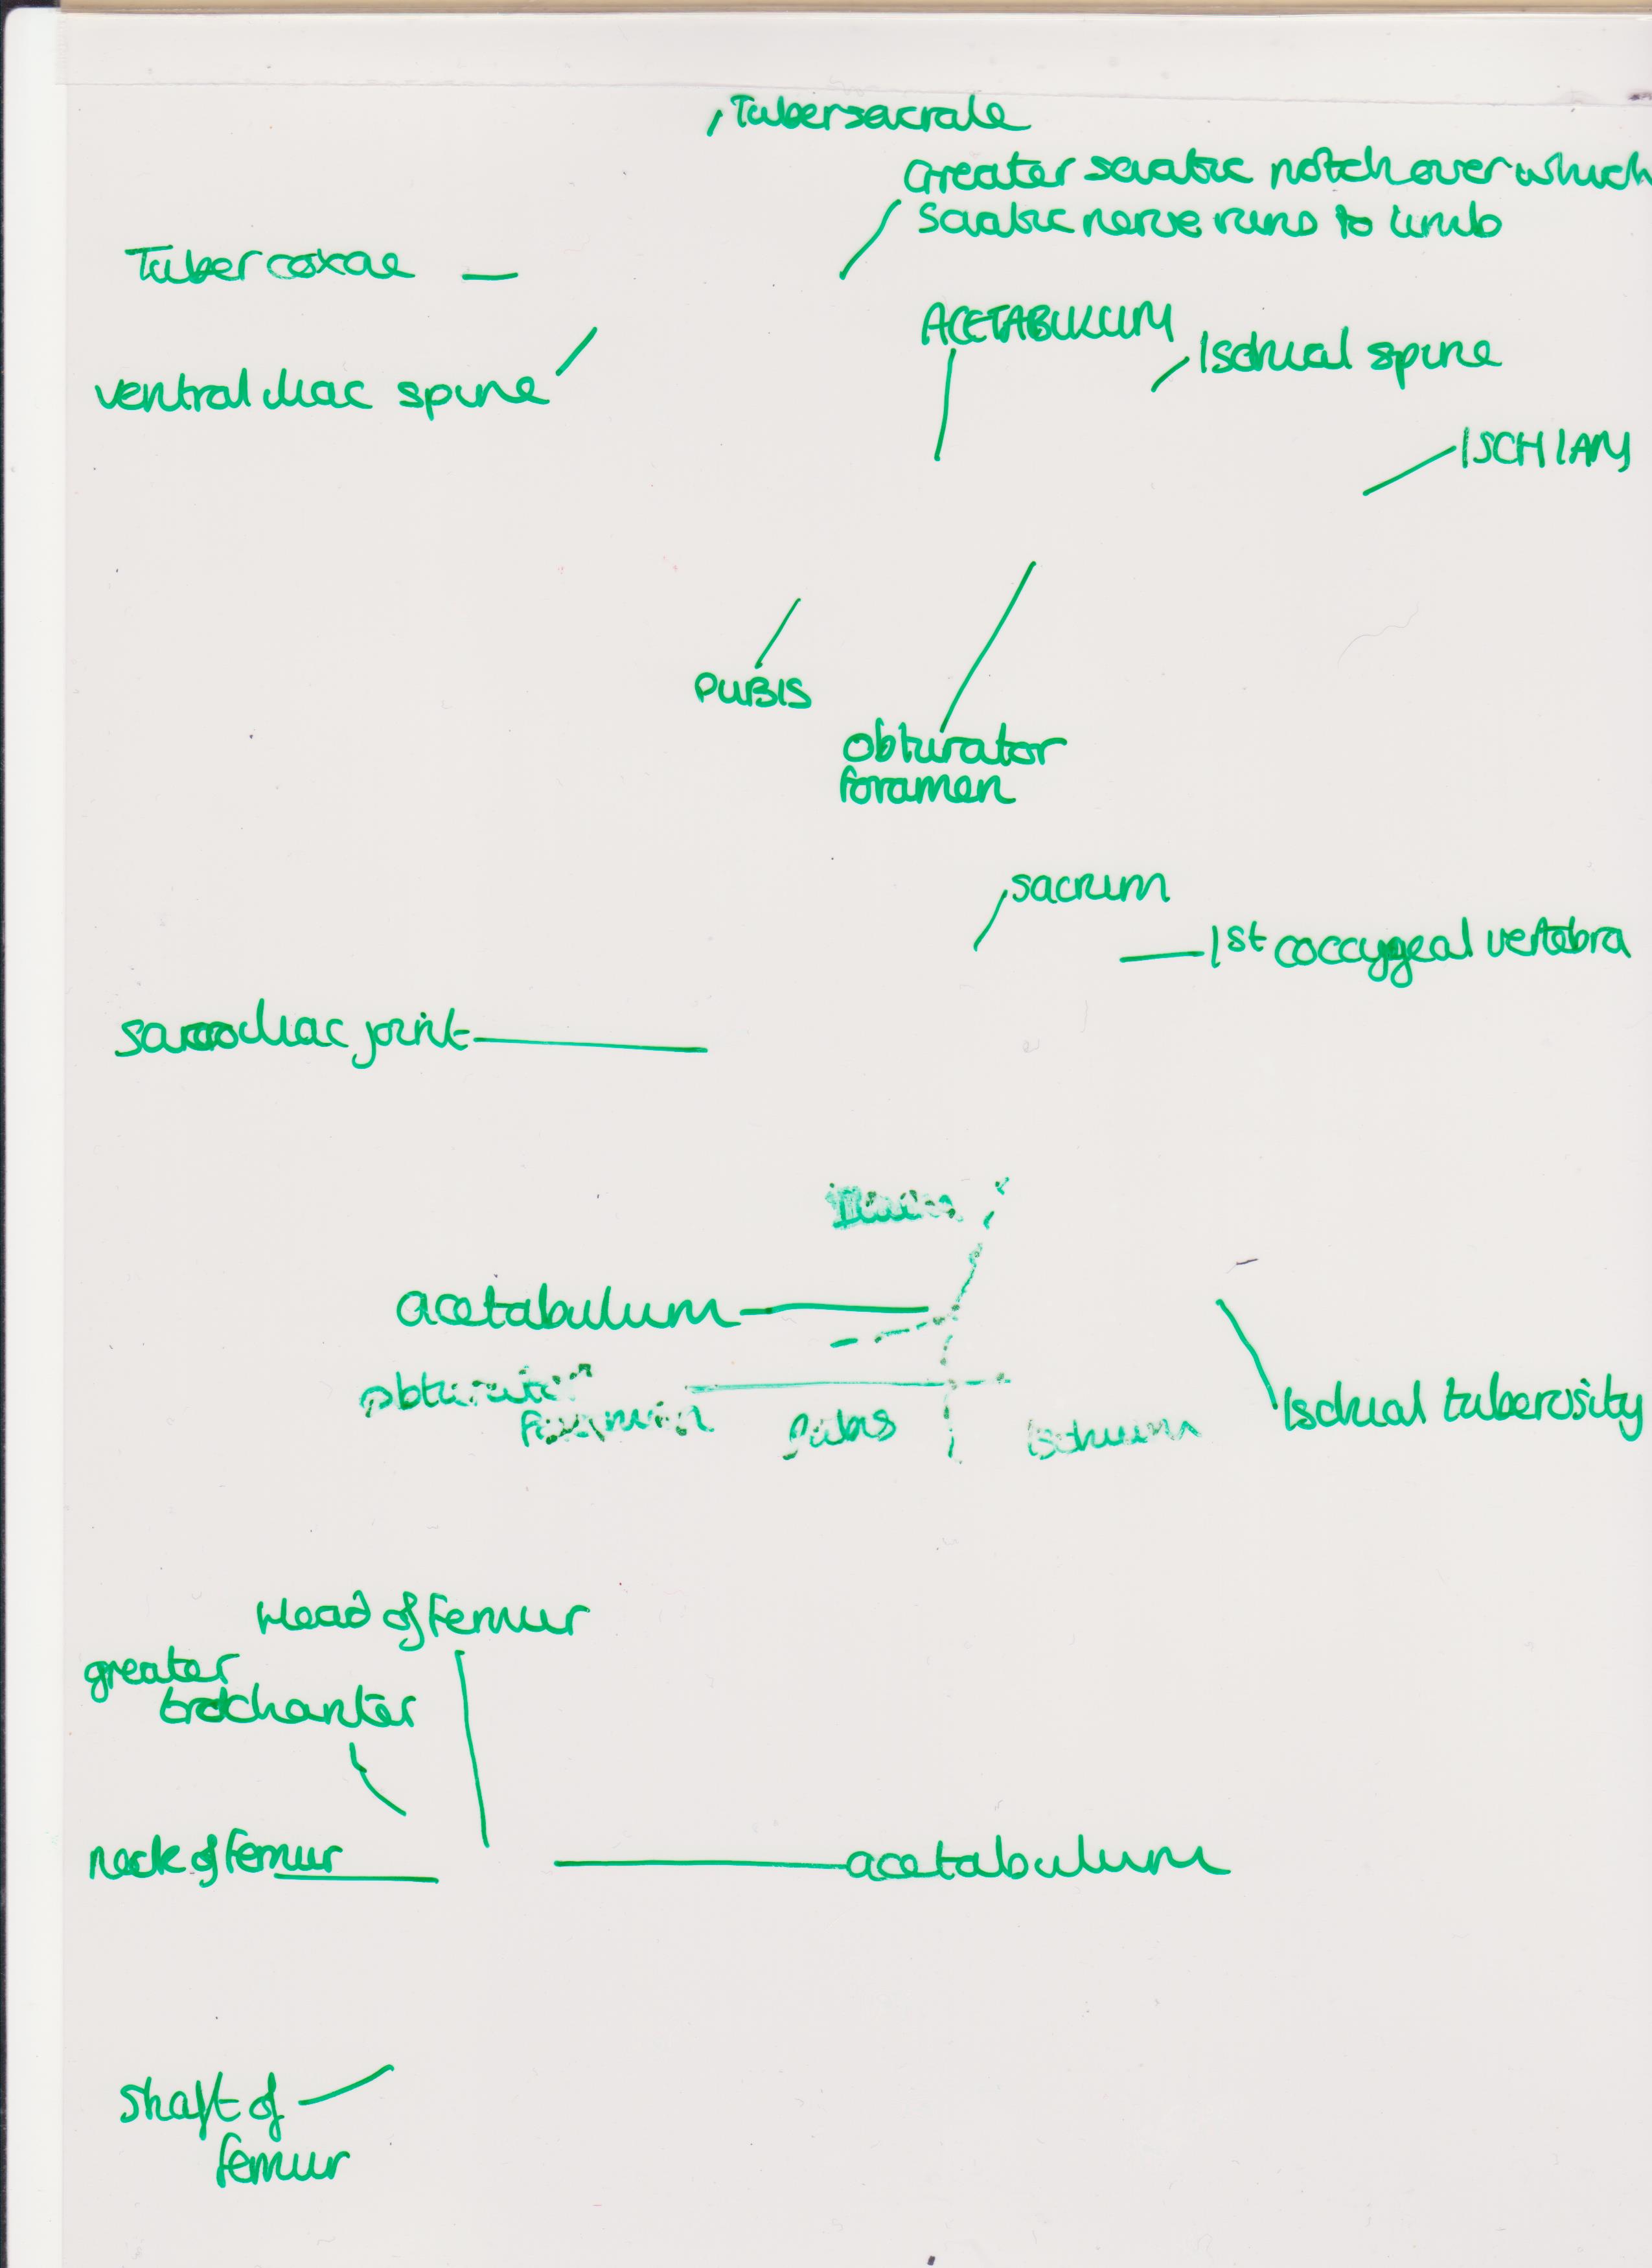 Tubersacrale
Greater sciatic notch over which
Sciatic nerve runs to limb
Tuber coxae
ACETABULUM
Ischial spine
ventral iliac spine
ISCHIAM
PUBIS
obturator
foramen
sacrum
1st coccygeal vertebra
sacroiliac joint
Ilium
acetabulum
obturator
foramen
Pubis
Ischium
Ischial tuberosity
Head of Femur
greater
trochanter
neck of femur
acetabulum
shaft of
femur